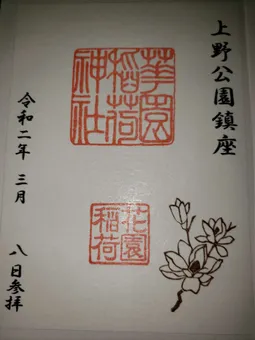 上野公園鎮座
華園
稲荷
神社
花園
稲荷
令和二年 三月 八日参拝